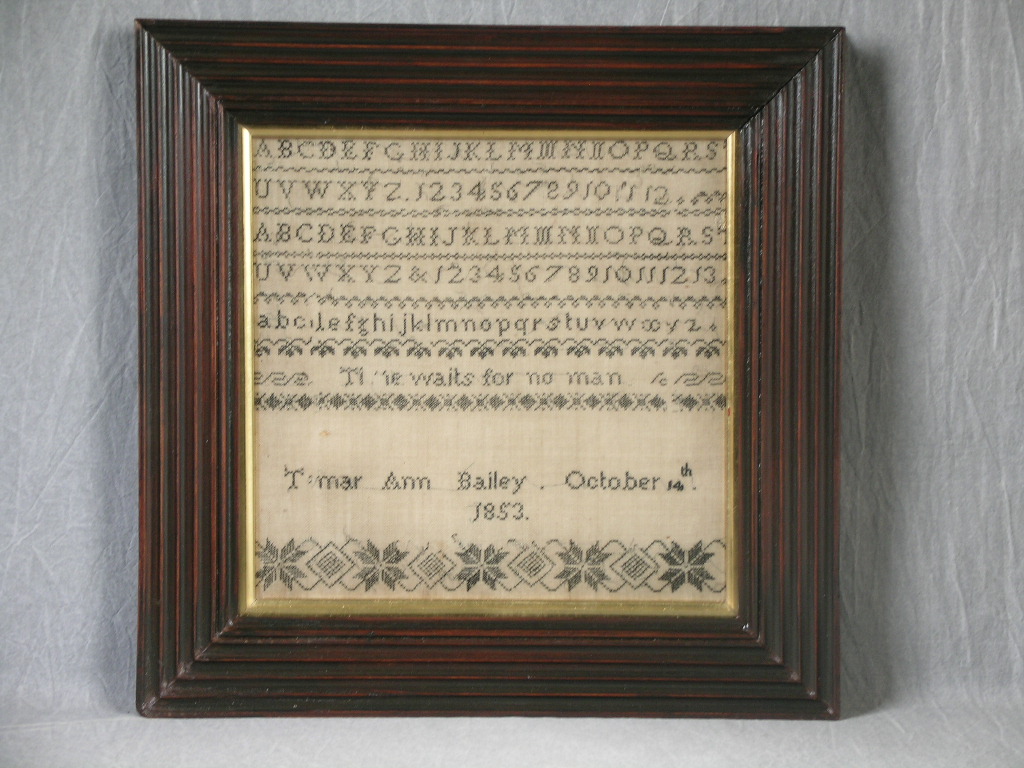 ABCDEFGHIJKLMNOPQRS
UVWXYZ.123456789101112
ABCDEFGHIJKLMNOPQRS
UVWXYZ&12345678910111213.
abcdefghijklmnopqrstuvwxyz.
Time waits for no man
Tamar Ann Bailey. October 14th.
1853.